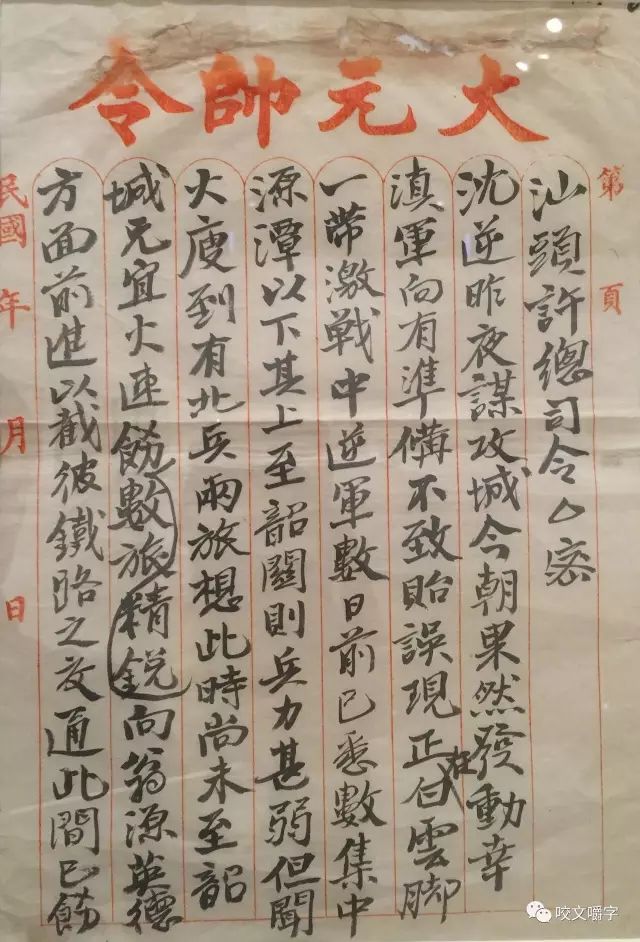 大元帥令
第 頁
汕頭許總司令△密
沈逆昨夜謀攻城今朝果然發動幸
滇軍向有準備不致貽誤現正在白雲腳
一帶激戰中逆軍數日前已悉數集中
源潭以下其上至韶關則兵力甚弱但聞
大庾到有北兵兩旅想此時尚未至韶
城兄宜火速飭數旅精銳向翁源英德
方面前進以截彼鐵路之交通此間已飭
民國 年 月 日
咬文嚼字